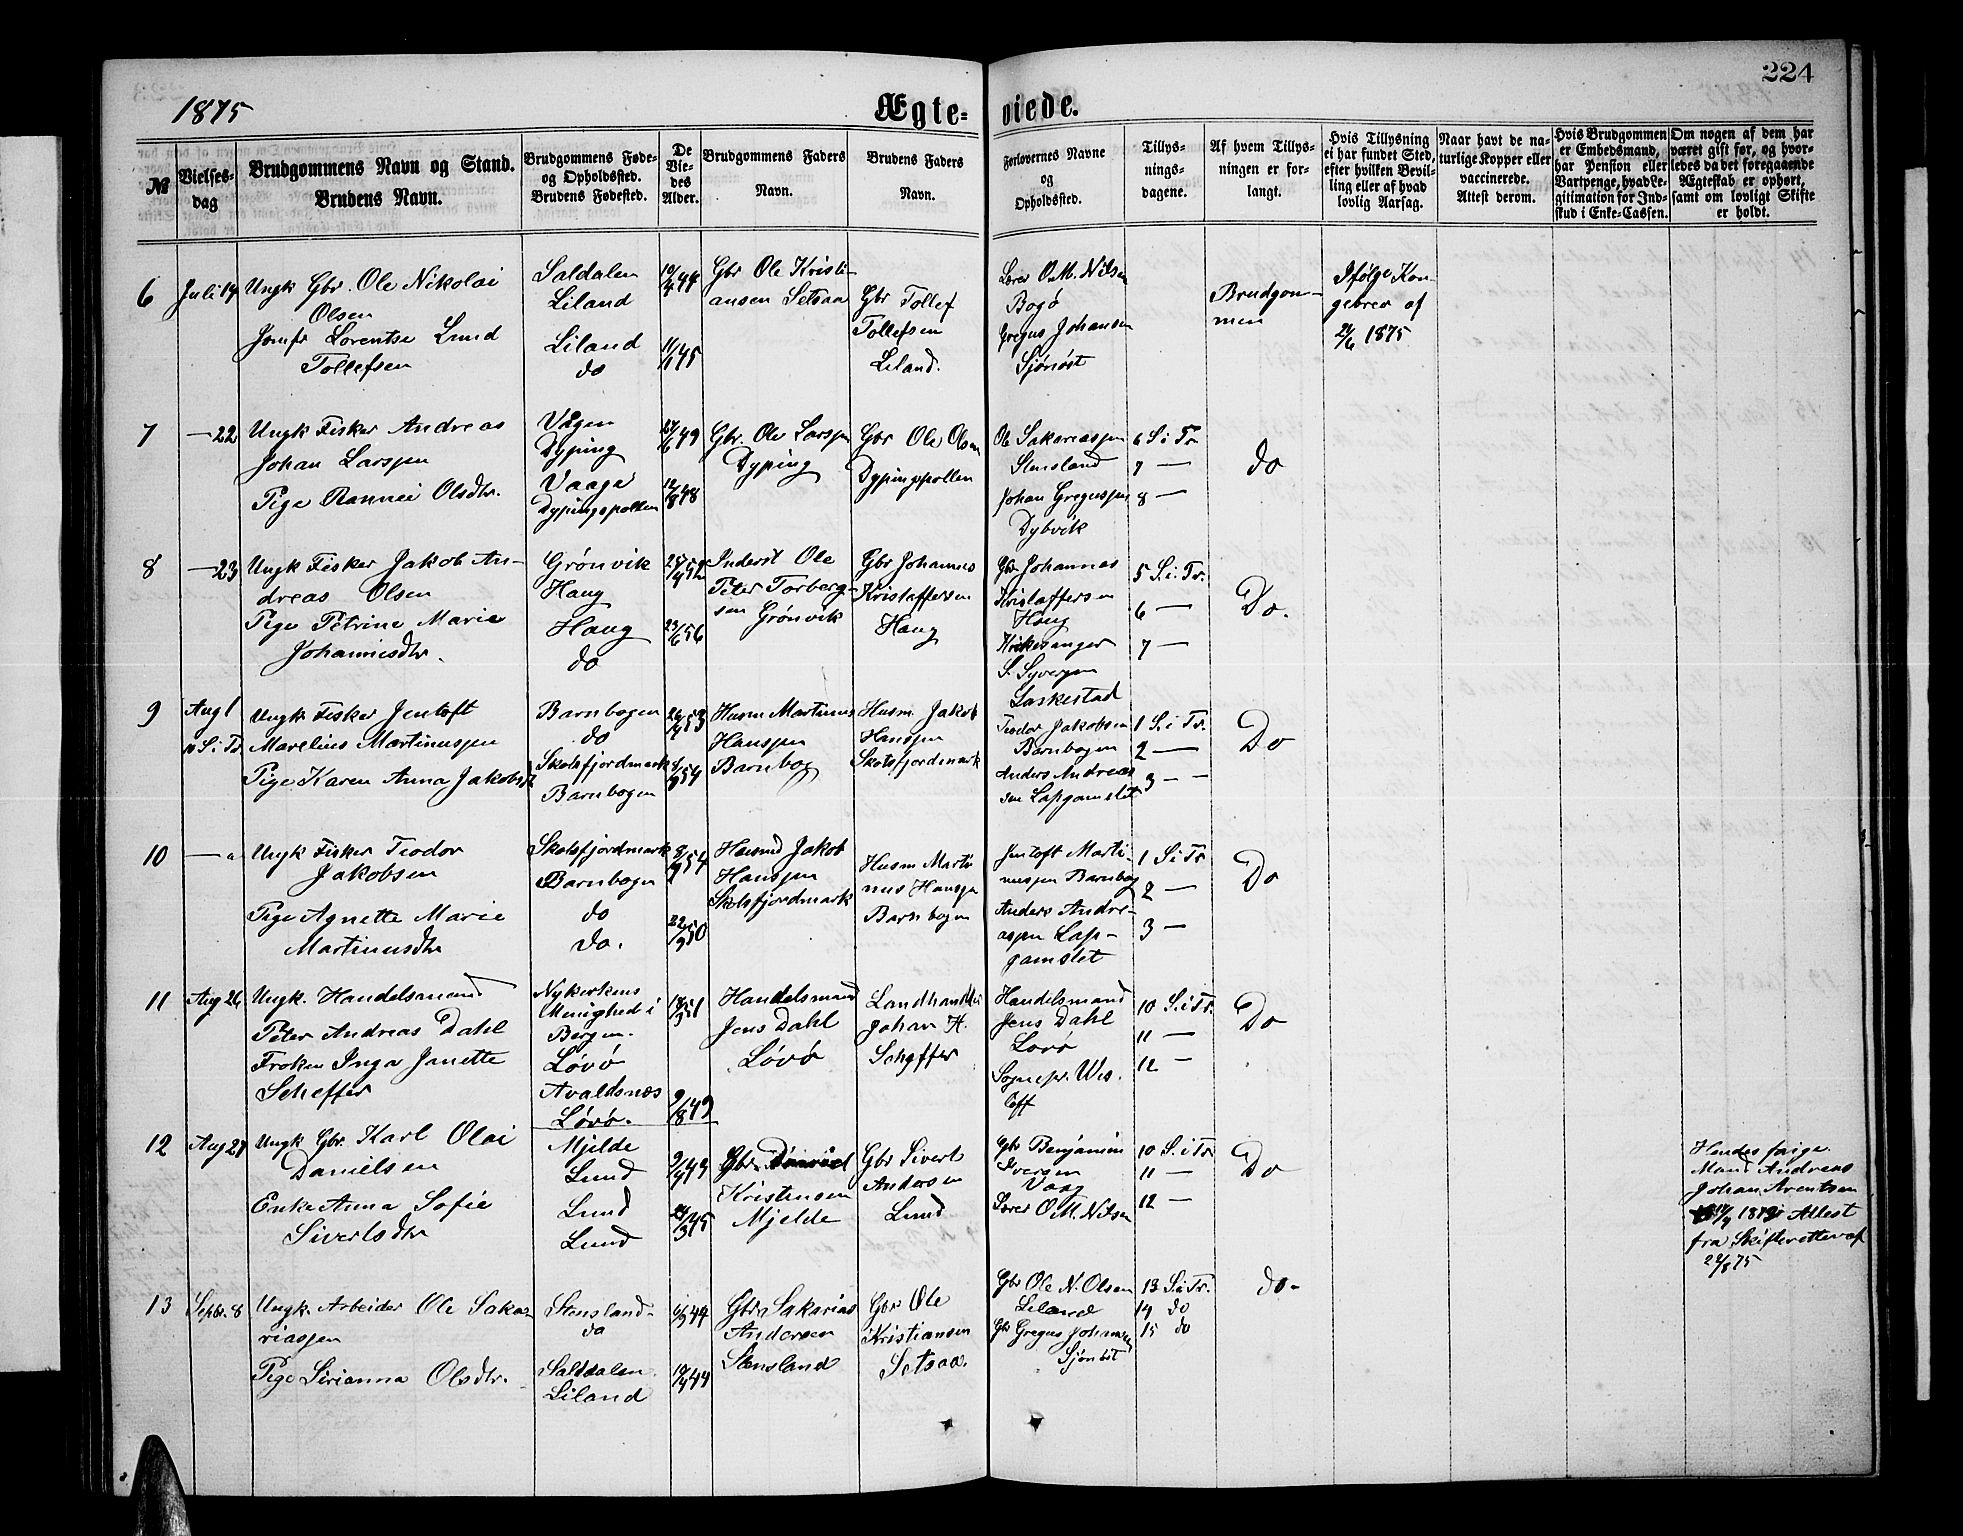 224
1875
Ægte-
viede.
№
Vielses-
dag
Brudgommens Navn og Stand.
Brudens Navn.
Brudgommens Føde-
og Opholdsfted.
Brudens Fødefted.
De
Vie-
des
Alder.
Brudgommens Faders
Navn.
Brudens Faders
Navn.
Forlovernes Navne
og
Opholdsfted.
Tillys-
nings-
dagene.
Af hvem Tillys-
ningen er for-
langt.
Hvis Tillysning
ei har fundet Sted,
efter hvilken Bevil-
ling eller af hvad
lovlig Aarsag.
Naar havt de na-
turlige Kopper eller
vaccinerede.
Attest derom.
Hvis Brudgommen
er Embedsmand,
har Pension eller
Vartpenge, hvad Le-
gitimation for Ind-
skud i Enke-Cassen.
Om nogen af dem har
været gift før, og hvor-
ledes da det foregaaende
Ægteskab er ophørt,
samt om lovligt Skifte
er holdt.
6
Juli 19
Ungk Gbr. Ole Nikolai
Olsen
Jomfr Lorentse Lund
Tollefsen
Saldalen
Liland
Liland
do
11/1 45
Gbr Ole Kristi-
ansen Setsaa
Gbr Tollef
Tollefsen
Liland.
Lærer O. M. Nilsen
Bogø
Gregus Johansen
Sjønøst
Brudgom-
men
Ifølge Kon-
gebrev af
1875
7
— 22
Ungk Fisker Andreas
Johan Larssen
Pige Rannei Olsdtr.
Vågen
Dyping
Vaage
Dypingspollen
Gbr. Ole Larssen
Dyping
Gbr Ole Olsen
Dypingpollen
Ole Sakariassen
Stensland
Johan Gregussen
Dybvik
6 S. i Tr.
7 —
8 —
do
8
— 23
Ungk Fisker Jakob An-
dreas Olsen
Pige Petrine Marie
Johannisdtr.
Grønvik
Haug
Haug
do
23/6 56
Inderst Ole
Peter Torberg-
sen Grønvik
Gbr Johannes
Kristaffersen
Haug
Gbr Johannes
Kristaffersen
Haug
Kirkesanger
S. Syversen
Laskestad
5 S. i. Tr.
6 —
7 —
Do.
9
Aug 1
10 S. i Tr.
Ungk Fisker Jentoft
Marelius Martinussen
Pige Karen Anna Jakobsd
Barnbogen
do
Skotsfjordmark
Barnbogen
Husm Martinus
Hanssen
Barnbog
Husm Jakob
Hanssen
Skotsfjordmark
Teodor Jakobsen
Barnbogen
Anders Andreas
sen Lapgamslet
1 S. i Tr.
2 —
3 — —
Do
10
— "
Ungk Fisker Teodor
Jakobsen
Pige Agnette Marie
Martinusdtr
Skotsfjordmark
Barnbogen
do
do.
22/9 50
Husmd Jakob
Hanssen
Skotsfjordmark
Husm Marti
nus Hanssen
Barnbogen
Jentoft Marti-
nussen Barnbog
Anders Andre-
assen Lap-
gamslet
1 S. i Tr
2 —
3 —
Do
11
Aug 26
Ungk. Handelsmand
Peter Andreas Dahl
Frøken Inga Janette
Scheffer
Nykirkens
Menighed i
Bergen.
Løvø
Avaldsnes
Løvø.
9/8 49
Handelsmand
Jens Dahl
Løvø
Landhandler
Johan H.
Scheffer
Handelsmand
Jens Dahl
Løvø
Sognepr. Wis.
løff
10 S. i Tr.
11 —
12 —
Do
12
Aug 27
Ungk Gbr. Karl Olai
Danielsen
Enke Anna Sofie
Sivertsdtr
Mjelde
Lund
Lund
Lund
Gbr. Daniel
Kristensen
Mjelde
Gbr Sivert
Andersen
Lund
Gbr Benjamin
Iversen
Vaag
Lærer O. M. Nilsen
10 S. i Tr.
11 —
12 —
Do
Hendes forige
Mand Andreas
Johan Arentsen
Attest
fra Skifteretten af
13
Septbr. 8
Ungk. Arbeider Ole Saka-
riassen
Pige Sirianna Olsdtr.
Stensland
do
Saltdalen
Liland
Gbr. Sakarias
Andersen
Stensland
Gbr Ole
Kristiansen
Setsaa.
Gbr Ole N. Olsen
Liland
Gbr Gregus Johansen
Sjønøst
13 S. i Tr.
14 do
15 do
do.